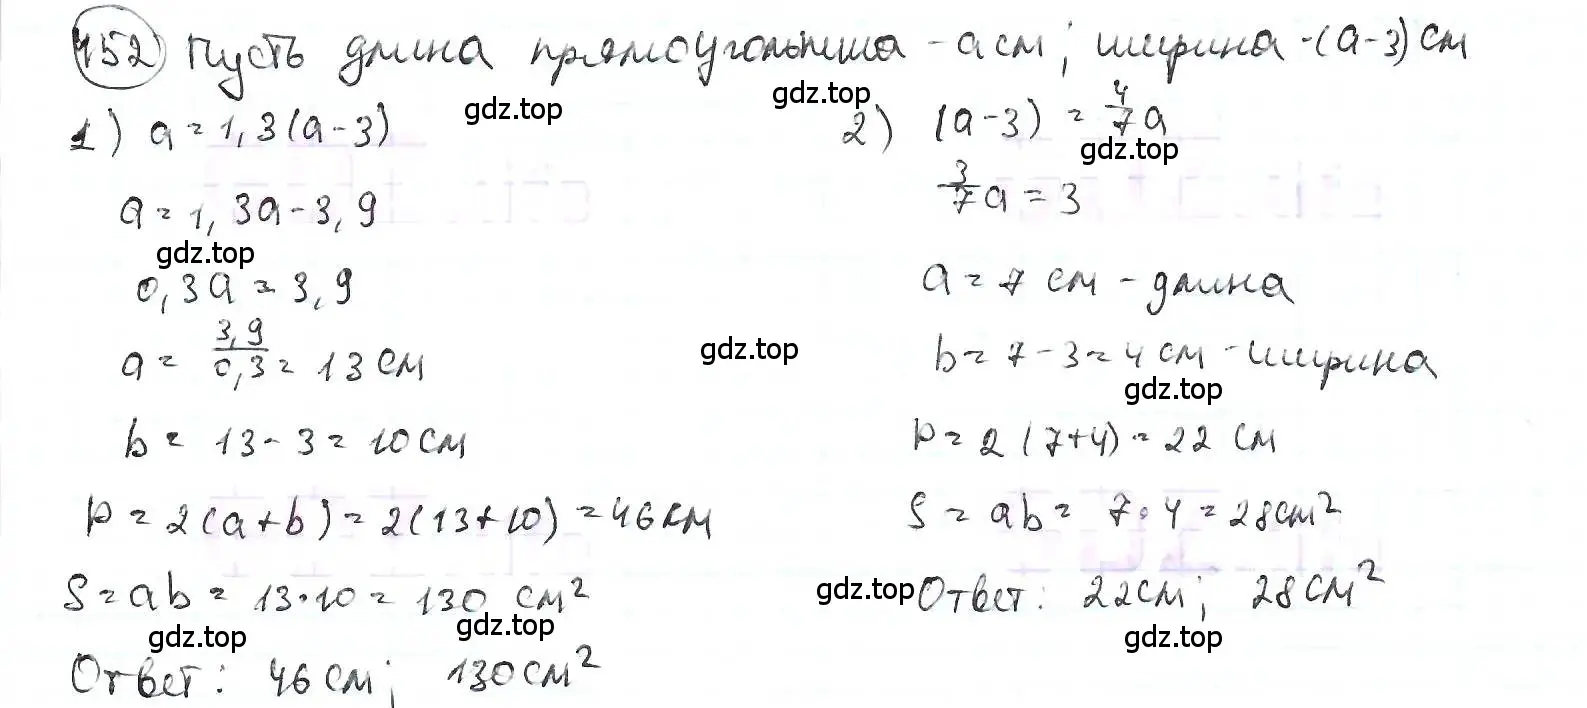 452 Пусть длина прямоугольника - a см; ширина - (a-3) см
1) a = 1,3(a-3)
a = 1,3a - 3,9
0,3a = 3,9
a = 3,9/0,3 = 13 см
b = 13 - 3 = 10 см
p = 2(a+b) = 2(13+10) = 46 см
S = ab = 13·10 = 130 см²
Ответ: 46 см; 130 см²
2) (a-3) = 4/7 a
3/7 a = 3
a = 7 см - длина
b = 7 - 3 = 4 см - ширина
p = 2(7+4) = 22 см
S = ab = 7·4 = 28 см²
Ответ: 22 см; 28 см²
gdz.top
gdz.top
gdz.top
gdz.top
gdz.top
gdz.top
gdz.top
gdz.top
gdz.top
gdz.top